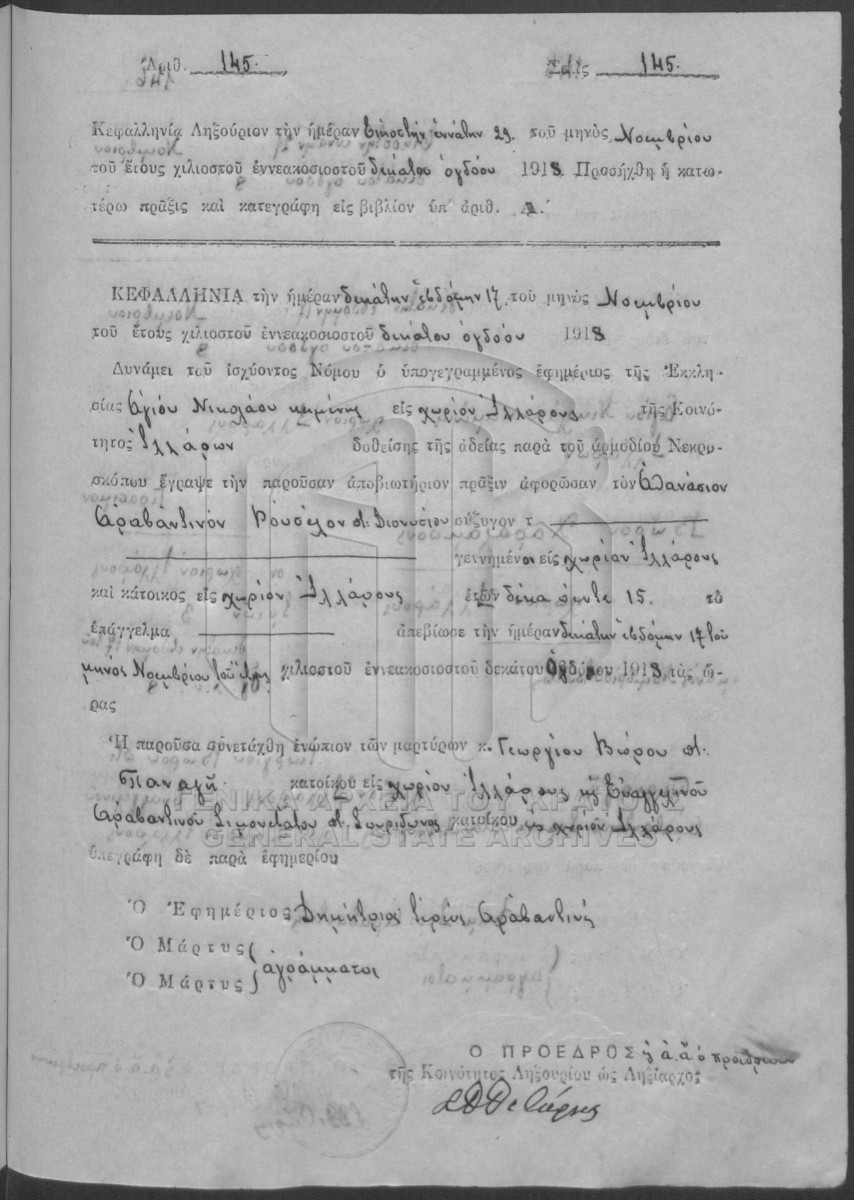 Ἀριθ. 145. 145.
Κεφαλληνία Ληξούριον τὴν ἡμέραν εἰκοστὴν ἐννάτην 29. τοῦ μηνὸς Νοεμβρίου
τοῦ ἔτους χιλιοστοῦ ἐννεακοσιοστοῦ δεκάτου ὀγδόου 1918. Προσήχθη ἡ κατω-
τέρω πρᾶξις καὶ κατεγράφη εἰς βιβλίον ὑπ' ἀριθ. Α.'
ΚΕΦΑΛΛΗΝΙΑ τὴν ἡμέραν δεκάτην ἑβδόμην 17 τοῦ μηνὸς Νοεμβρίου
τοῦ ἔτους χιλιοστοῦ ἐννεακοσιοστοῦ δεκάτου ὀγδόου 1918
Δυνάμει τοῦ ἰσχύοντος Νόμου ὁ ὑπογεγραμμένος ἐφημέριος τῆς Ἐκκλη-
σίας Ἁγίου Νικολάου κειμένης εἰς χωρίον Ἰλλάρους τῆς Κοινό-
τητος Ἰλλάρων δοθείσης τῆς ἀδείας παρὰ τοῦ ἁρμοδίου Νεκρο-
σκόπου ἔγραψε τὴν παροῦσαν ἀποβιωτήριον πρᾶξιν ἀφορῶσαν τὸν Ἀθανάσιον
Ἀραβαντινὸν Διονυσίου σύζυγον τ
γεινημένον εἰς χωρίον Ἰλλάρους
καὶ κάτοικος εἰς χωρίον Ἰλλάρους ἐτῶν δέκα πέντε 15. τὸ
ἐπάγγελμα ἀπεβίωσε τὴν ἡμέραν δεκάτην ἑβδόμην 17 τοῦ
μηνὸς Νοεμβρίου τοῦ ἔτους χιλιοστοῦ ἐννεακοσιοστοῦ δεκάτου Ὀγδόου 1918 τὰς ὥ-
ρας
Ἡ παροῦσα συνετάχθη ἐνώπιον τῶν μαρτύρων κ. Γεωργίου Βώρου
Παναγῆ κατοίκου εἰς χωρίον Ἰλλάρους κ Εὐαγγελινοῦ
Ἀραβαντινοῦ Σπυρίδωνος κατοίκου εἰς χωρίον Ἰλλάρους
ὑπεγράφη δὲ παρὰ ἐφημερίου
ΓΕΝΙΚΑ ΑΡΧΕΙΑ ΤΟΥ ΚΡΑΤΟΥΣ
GENERAL STATE ARCHIVES
Ὁ Ἐφημέριος Δημήτριος Ἱερεὺς Ἀραβαντινός
Ὁ Μάρτυς
ἀγράμματοι
Ὁ Μάρτυς
Ο ΠΡΟΕΔΡΟΣ ἀ. ἀ ὁ προεδρεύων
τῆς Κοινότητος Ληξουρίου ὡς Ληξίαρχος